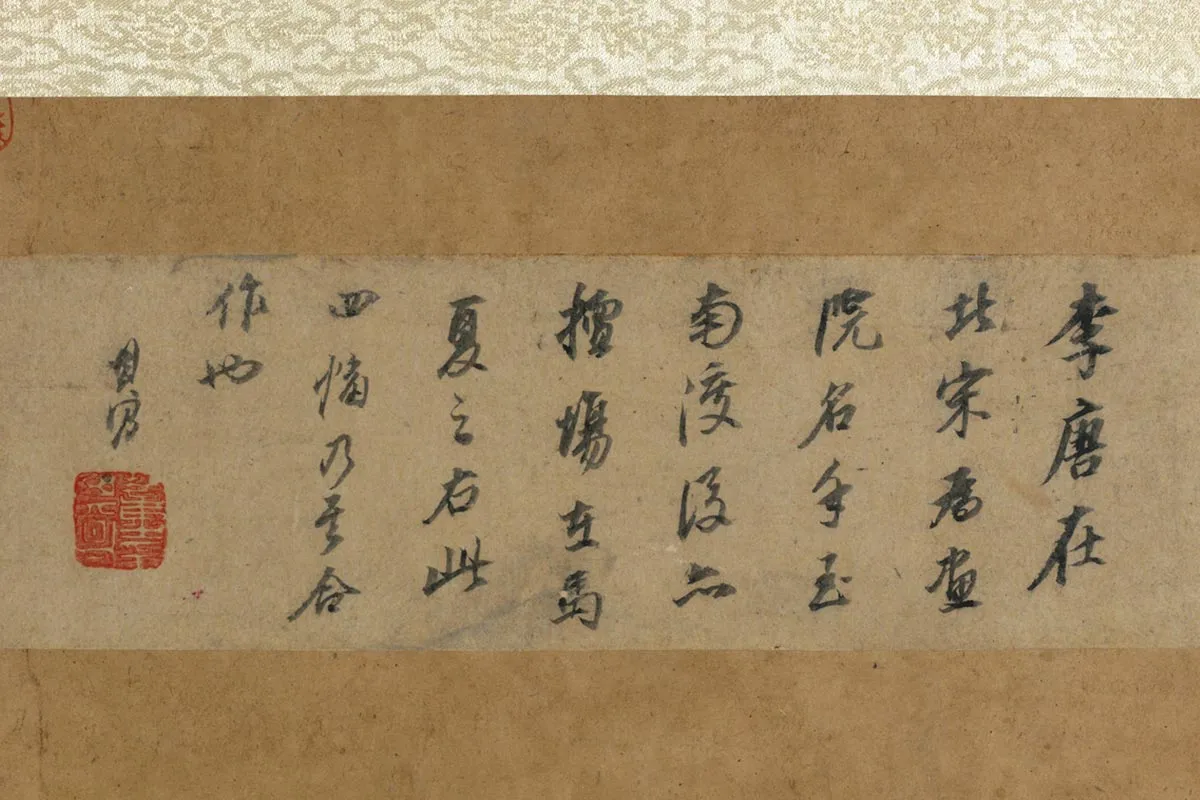 李唐在
北宋為畫
院名手至
南渡後亦
擅場在馬
夏之右此
四幅乃其合
作也
其昌